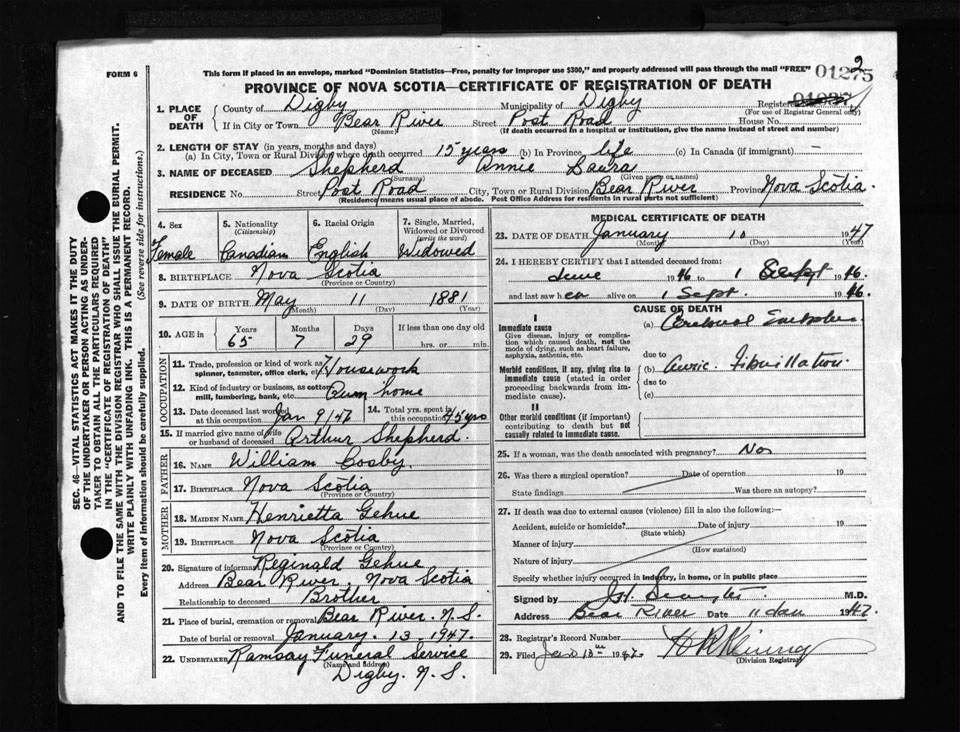 FORM 6
This form if placed in an envelope, marked "Dominion Statistics—Free, penalty for improper use $300," and properly addressed will pass through the mail "FREE"
2
01275
PROVINCE OF NOVA SCOTIA—CERTIFICATE OF REGISTRATION OF DEATH
1. PLACE OF DEATH
County of Digby Municipality of Digby Registered
(For use of Registrar General only)
If in City or Town Bear River Street Post Road House No.
(Name) (If death occurred in a hospital or institution, give the name instead of street and number)
2. LENGTH OF STAY (in years, months and days)
(a) In City, Town or Rural Division where death occurred 15 years (b) In Province life (c) In Canada (if immigrant) —
3. NAME OF DECEASED Shepherd Annie Laura
(Surname) (Given name or names)
RESIDENCE No. Street Post Road City, Town or Rural Division Bear River Province Nova Scotia.
(Residence means usual place of abode. Post Office Address for residents in rural parts not sufficient)
4. Sex
Female
5. Nationality
(Citizenship)
Canadian
6. Racial Origin
English
7. Single, Married, Widowed or Divorced
(write the word)
Widowed
8. BIRTHPLACE Nova Scotia
(Province or Country)
9. DATE OF BIRTH May 11 1881
(Month) (Day) (Year)
10. AGE in
Years Months Days If less than one day old
65 7 29 hrs. or min.
OCCUPATION
11. Trade, profession or kind of work as Housework
spinner, teamster, office clerk, etc.
12. Kind of industry or business, as cotton Own home
mill, lumbering, bank, etc.
13. Date deceased last worked at this occupation Jan 9/47
14. Total yrs. spent in this occupation 45 yrs
15. If married give name of wife
or husband of deceased Arthur Shepherd.
FATHER
16. NAME William Cosby.
17. BIRTHPLACE Nova Scotia
(Province or Country)
MOTHER
18. MAIDEN NAME Henrietta Gehue
19. BIRTHPLACE Nova Scotia
(Province or Country)
20. Signature of informant Reginald Gehue
Address Bear River. Nova Scotia
Relationship to deceased Brother
21. Place of burial, cremation or removal Bear River. N.S.
Date of burial or removal January. 13, 1947.
22. UNDERTAKER Ramsay Funeral Service
(Name and Address)
Digby. N.S.
MEDICAL CERTIFICATE OF DEATH
23. DATE OF DEATH January 10 1947
(Month) (Day) (Year)
24. I HEREBY CERTIFY that I attended deceased from:
June 1946 to 1 Sept 1946.
and last saw her alive on 1 Sept. 1946.
CAUSE OF DEATH
I
Immediate cause
Give disease, injury or complication which caused death, not the mode of dying, such as heart failure, asphyxia, asthenia, etc.
(a) Cerebral
due to
Morbid conditions, if any, giving rise to immediate cause (stated in order proceeding backwards from immediate cause).
(b) Auric. Fibrillation.
due to
(c)
II
Other morbid conditions (if important) contributing to death but not causally related to immediate cause.
25. If a woman, was the death associated with pregnancy? No
26. Was there a surgical operation? Date of operation 19
State findings Was there an autopsy?
27. If death was due to external causes (violence) fill in also the following:—
Accident, suicide or homicide? Date of injury 19
(State which)
Manner of injury
(How sustained)
Nature of injury
Specify whether injury occurred in industry, in home, or in public place
Signed by M.D.
Address Bear River Date 11 Jan 1947.
28. Registrar's Record Number
29. Filed Jan 13th 1947
(Division Registrar)
SEC. 46—VITAL STATISTICS ACT MAKES IT THE DUTY
OF THE UNDERTAKER OR PERSON ACTING AS UNDERTAKER TO OBTAIN ALL THE PARTICULARS REQUIRED
IN THE "CERTIFICATE OF REGISTRATION OF DEATH"
AND TO FILE THE SAME WITH THE DIVISION REGISTRAR WHO SHALL ISSUE THE BURIAL PERMIT.
WRITE PLAINLY WITH UNFADING INK. THIS IS A PERMANENT RECORD.
Every item of information should be carefully supplied. (See reverse side for instructions.)